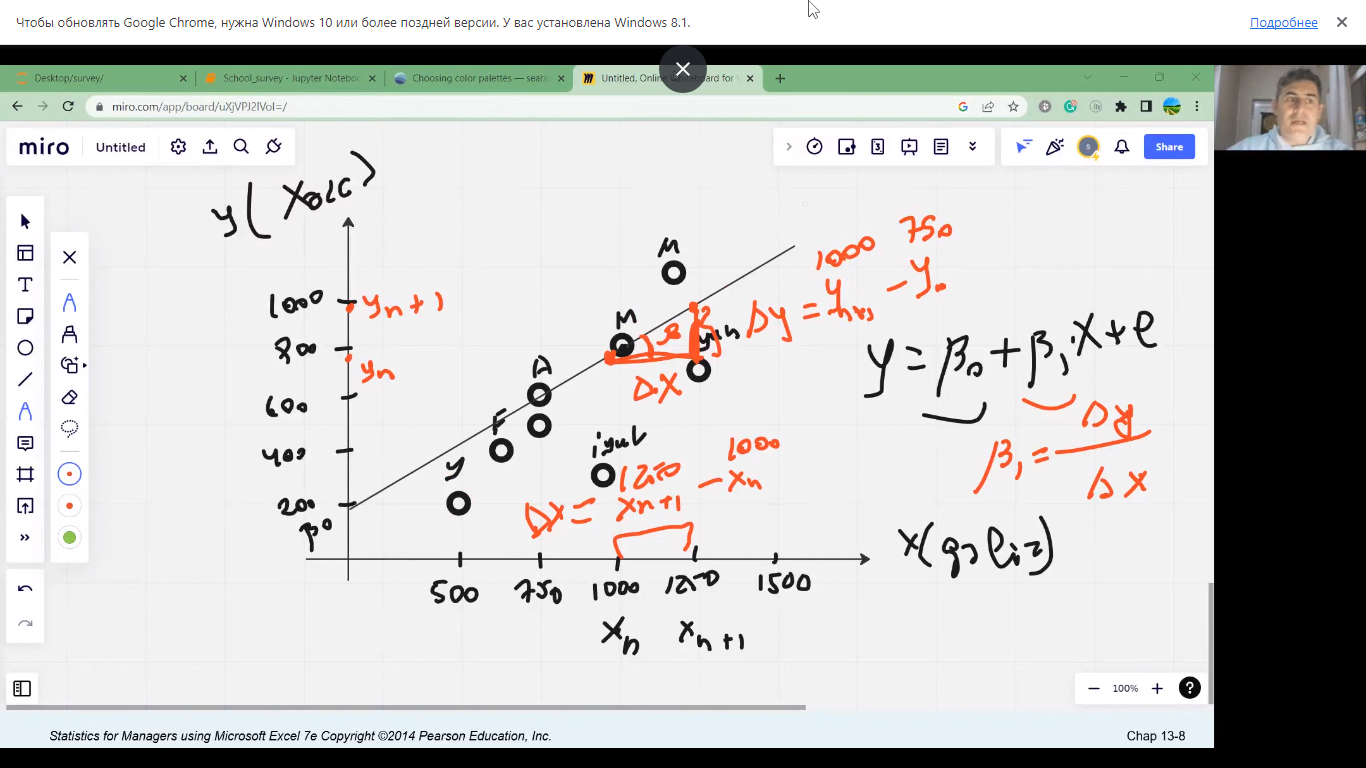 Чтобы обновлять Google Chrome, нужна Windows 10 или более поздней версии. У вас установлена Windows 8.1.
Подробнее
Desktop/survey/
School_survey - Jupyter Notebo
Choosing color palettes — seab
Untitled, Online Whiteboard for V
miro.com/app/board/uXjVPJ2lVoI=/
miro
Untitled
Share
y(
1000
750
1000
yn+1
M
Δy =
- y
800
M
yn
ΔX
y = β0 + β1 · X + e
A
600
F
β1 = Δy / ΔX
400
y
1000
1250
- xn
200
Δx = xn+1
β0
500
750
1000
1250
1500
Xn
xn+1
100%
Statistics for Managers using Microsoft Excel 7e Copyright ©2014 Pearson Education, Inc.
Chap 13-8